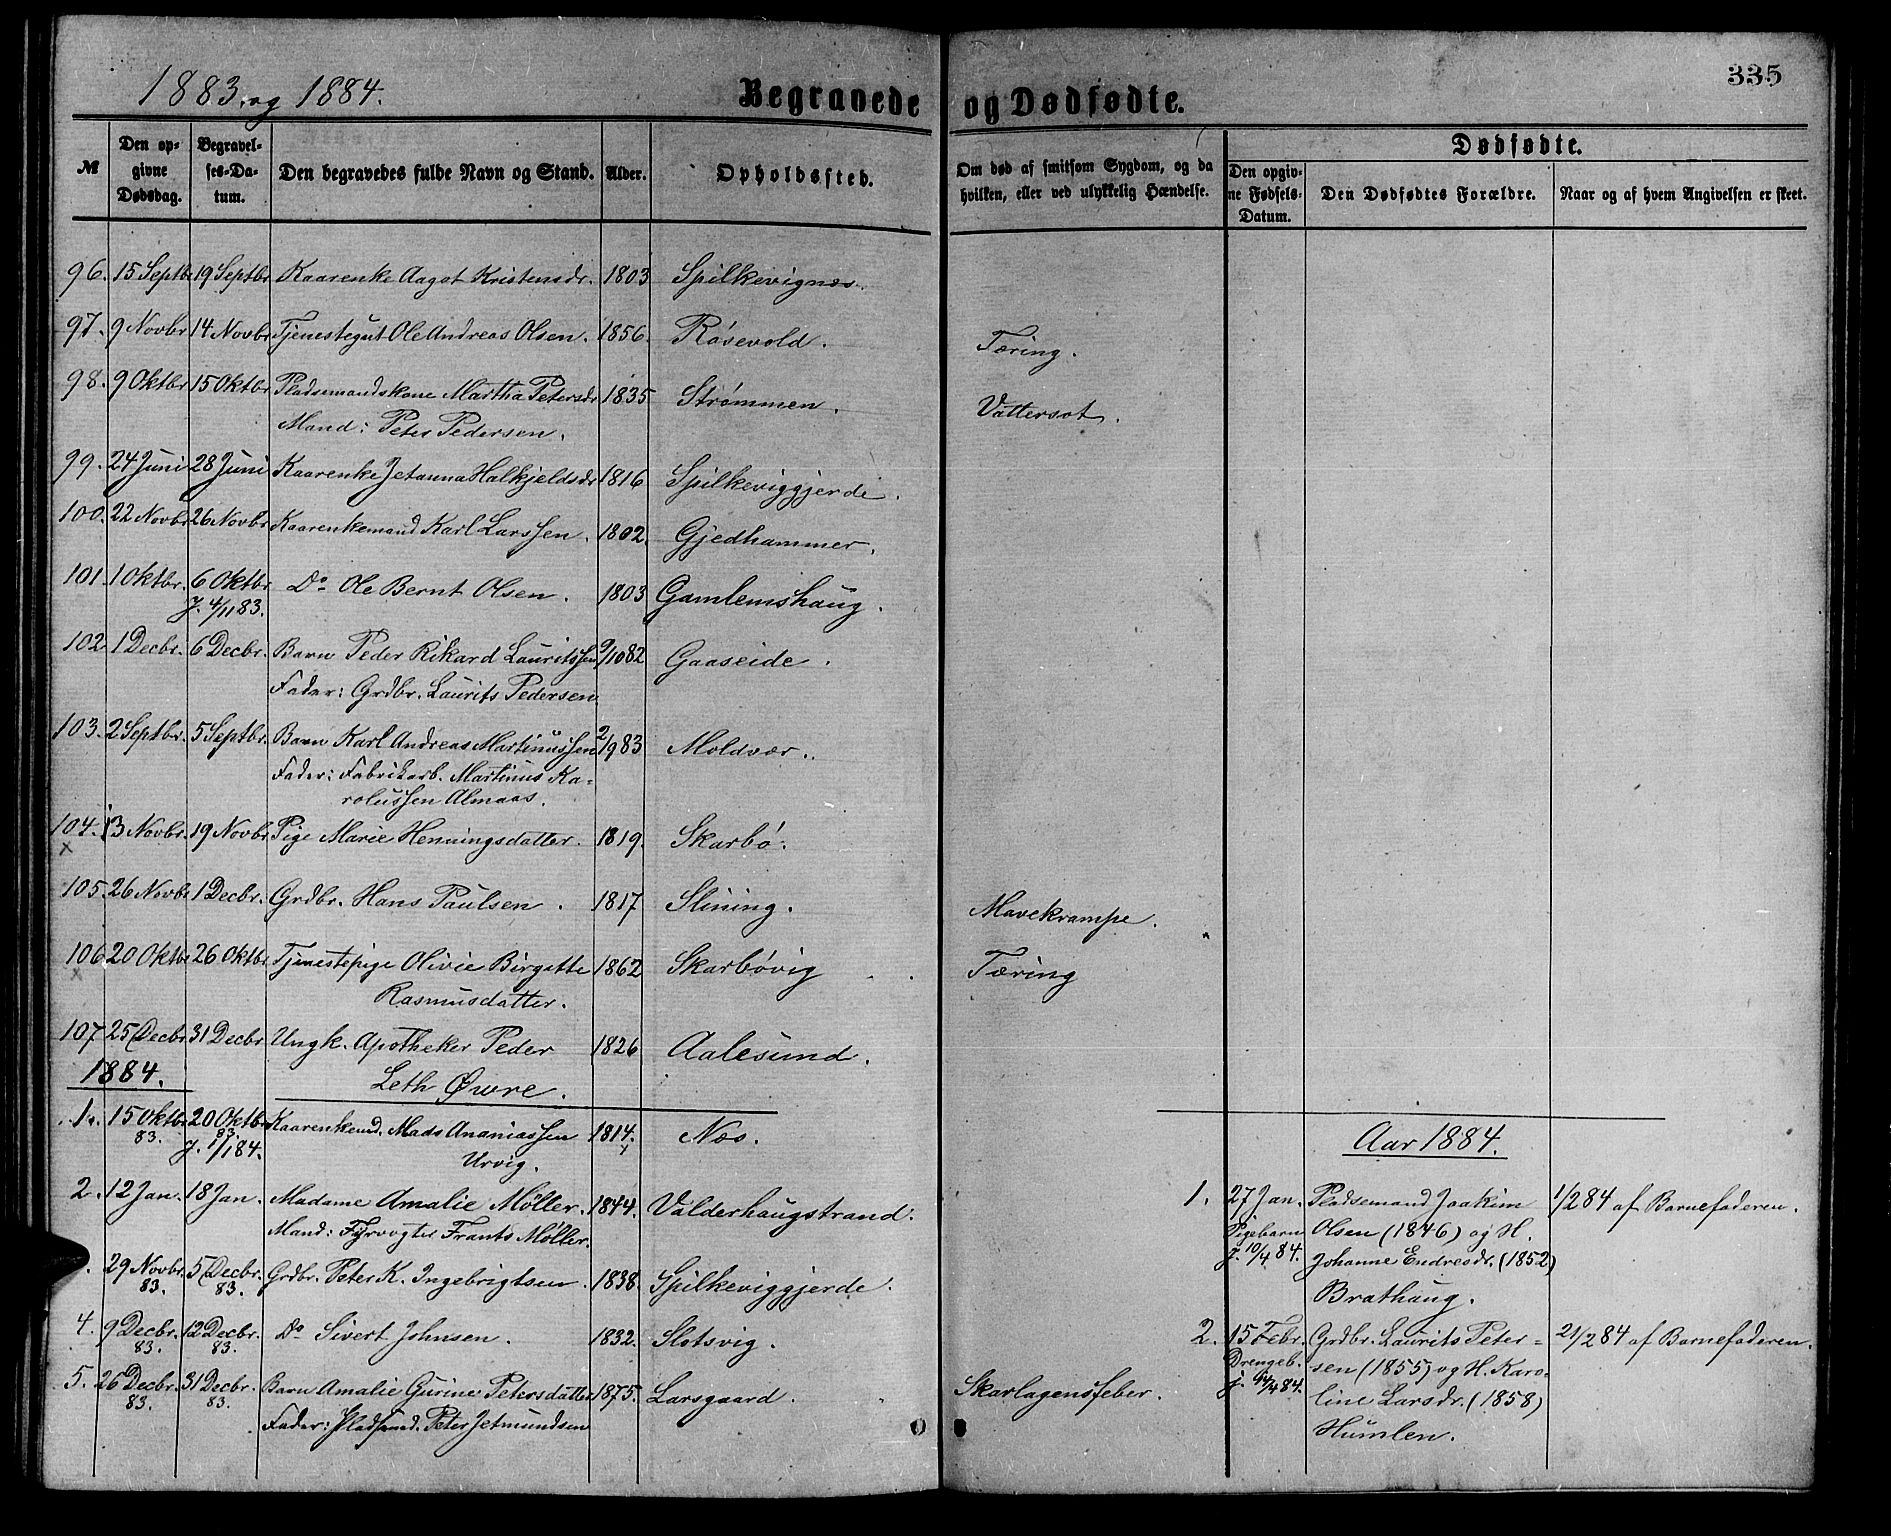 1883 og 1884.
Begravede og Dødfødte.
335
№
Den opgivne Dødsdag.
Begravelses-Datum.
Den begravedes fulde Navn og Stand.
Alder.
Opholdssted.
Om død af smitsom Sygdom, og da hvilken, eller ved ulykkelig Hændelse.
Dødfødte.
Den opgivne Fødsels-Datum.
Den Dødfødtes Forældre.
Naar og af hvem Angivelsen er skeet.
96. 15 Septbr 19 Septbr Kaarenke Aagot Kristensdr. 1803 Spilkevignæs.
97. 9 Novbr 14 Novbr Tjenestegut Ole Andreas Olsen. 1856. Røsevold. Tæring.
98. 9 Oktbr 15 Oktbr Pladsemandskone Martha Petersdr 1835 Strømmen. Vattersot.
Mand: Peter Pedersen.
99. 24 Juni 28 Juni Kaarenke Jetanna Halkjeldsdr 1816 Spilkeviggjerde.
100. 22 Novbr 26 Novbr Kaarenkemand Karl Larssen. 1802. Gjedhammer.
101. 1 Oktbr. 6 Oktbr Do Ole Bernt Olsen. 1803 Gamlemshaug.
J. 4/11 83.
102 1 Decbr. 6 Decbr. Barn Peder Rikard Lauritssen 9/10 82 Gaaseide.
Fader: Grdbr. Laurits Pedersen
103. 2 Septbr. 5 Septbr. Barn Karl Andreas Martinussen 2/9 83 Moldvær.
Fader: Fabrikarb. Martinus Ka-
rolussen Almaas.
104. 13 Novbr. 19 Novbr Pige Marie Henningsdatter. 1819. Skarbø.
x
105. 26 Novbr 1 Decbr. Grdbr. Hans Paulsen. 1817 Slining. Mavekrampe.
106 20 Oktbr 26 Oktbr. Tjenestepige Olivie Birgitte 1862 Skarbøvig Tæring
x Rasmusdatter.
107 25 Decbr 31 Decbr Ungk. Apotheker Peder 1826 Aalesund.
Leth Øwre.
1884.
1. 15 Oktbr 20 Oktbr Kaarenkemd. Mads Ananiassen 1814. Næs.
83. 83
J. 1/1 84. Urvig.
2. 12 Jan. 18 Jan. Madame Amalie Möller. 1844. Valderhaugstrand.
Mand: Fyrvogter Frants Möller.
29 Novbr. 5 Decbr. Grdbr. Peter K. Ingebrigtsen. 1838. Spilkeviggjerde.
83. 83.
4. 9 Decbr. 12 Decbr. Do Sivert Johnsen. 1832. Slotsvig.
83. 83.
5. 26 Decbr. 31 Decbr. Barn Amalie Gurine Petersdatter 1875. Larsgaard. Skarlagensfeber.
83. 83.
Fader: Pladsemd. Peter Jetmundsen
Aar 1884.
1. 27 Jan. Pladsemand Joakim 1/2 84 af Barnefaderen.
Pigebarn Olsen (1846) og H.
J. 10/4 84. Johanne Endresdr. (1852)
Brathaug.
2. 15 Febr. Grdbr. Laurits Peter- 21/2 84 af Barnefaderen.
Drengeb. sen (1855) og H. Karo-
line Larsdr. (1858)
Humlen.